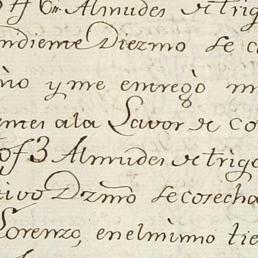 of 6 Almudes de trig
ndiente Diezmo se co
ño y me entregò m
entes a la Lavor de co
of 3 Almudes de trig
tivo Dzmo se cosecha
Lorenzo, en el mismo tie